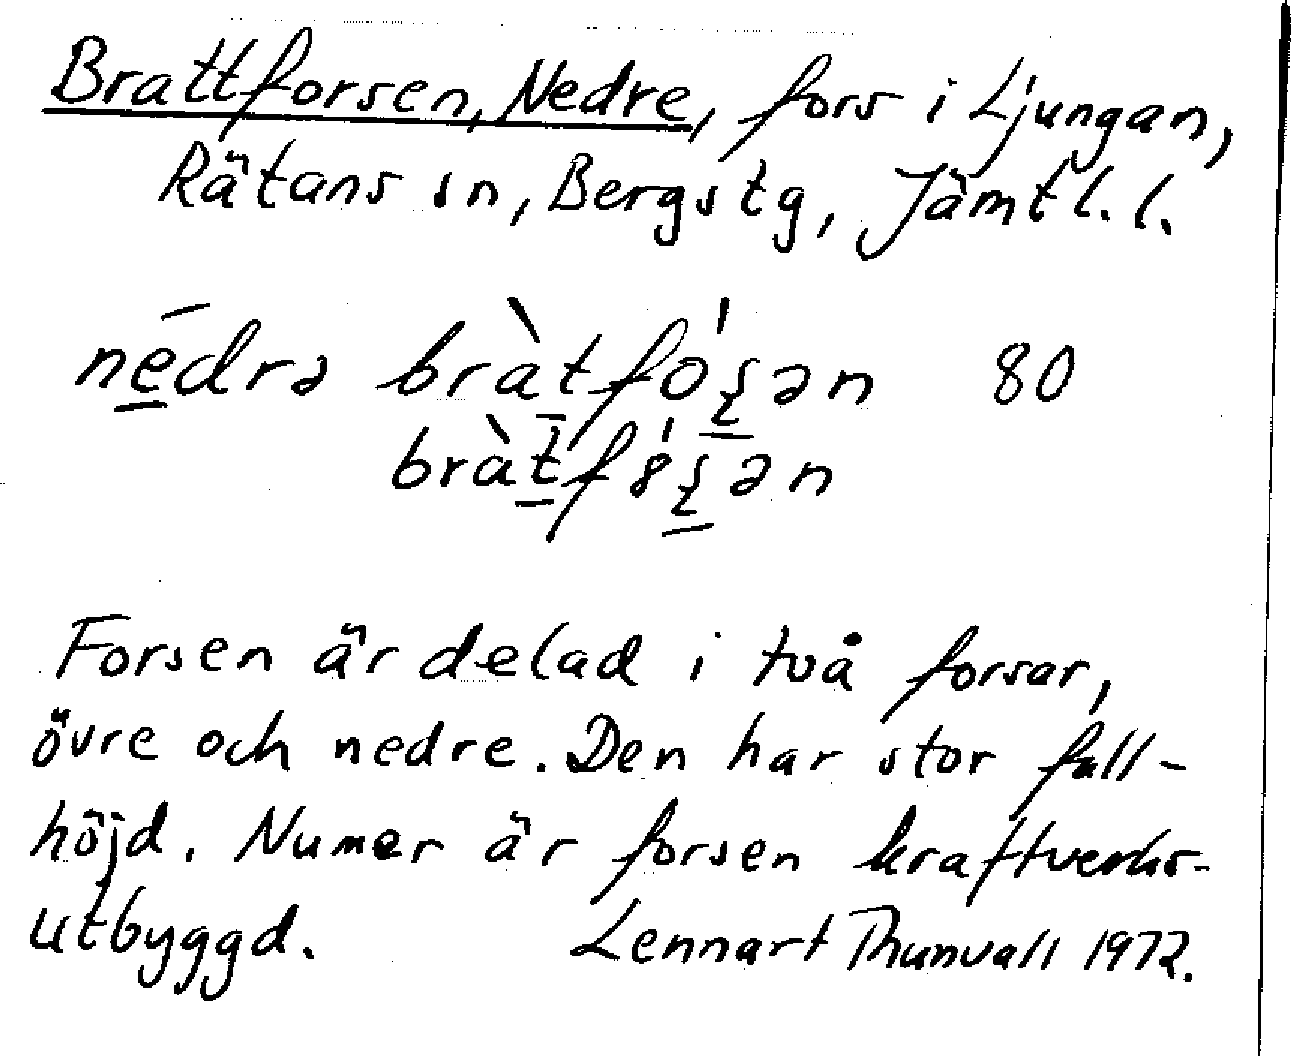 Brattforsen, Nedre, fors i Ljungan,
Rätans sn, Bergs tg, Jämtl. l.
nédrə bràtfó̱ʂən 80
bràtf8́ʂən
Forsen är delad i två forsar,
övre och nedre. Den har stor fall-
höjd. Numer är forsen kraftverks-
utbyggd. Lennart Thunvall 1972.